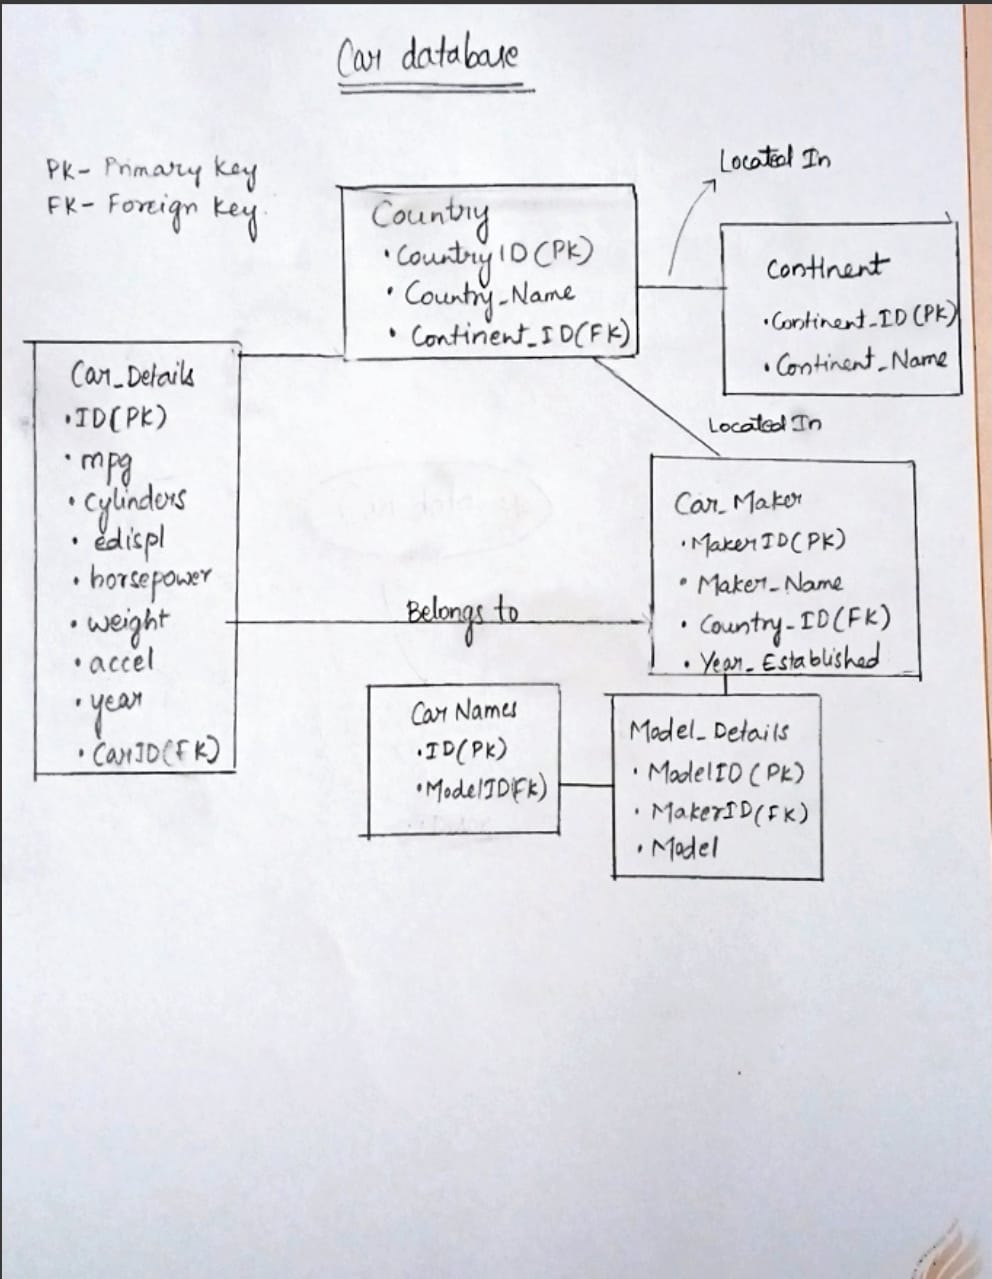 Car database
PK- Primary Key
FK- Foreign Key.
Located In
Country
• CountryID (PK)
• Country_Name
• Continent_ID(FK)
Continent
• Continent_ID (PK)
• Continent_Name
Car_Details
• ID(PK)
• mpg
• cylinders
• edispl
• horsepower
• weight
• accel
• year
• CarID(FK)
Located In
Car_Maker
• MakerID(PK)
• Maker_Name
• Country_ID(FK)
• Year_Established
Belongs to
Car Names
• ID(PK)
• ModelID(FK)
Model_Details
• ModelID (PK)
• MakerID(FK)
• Model